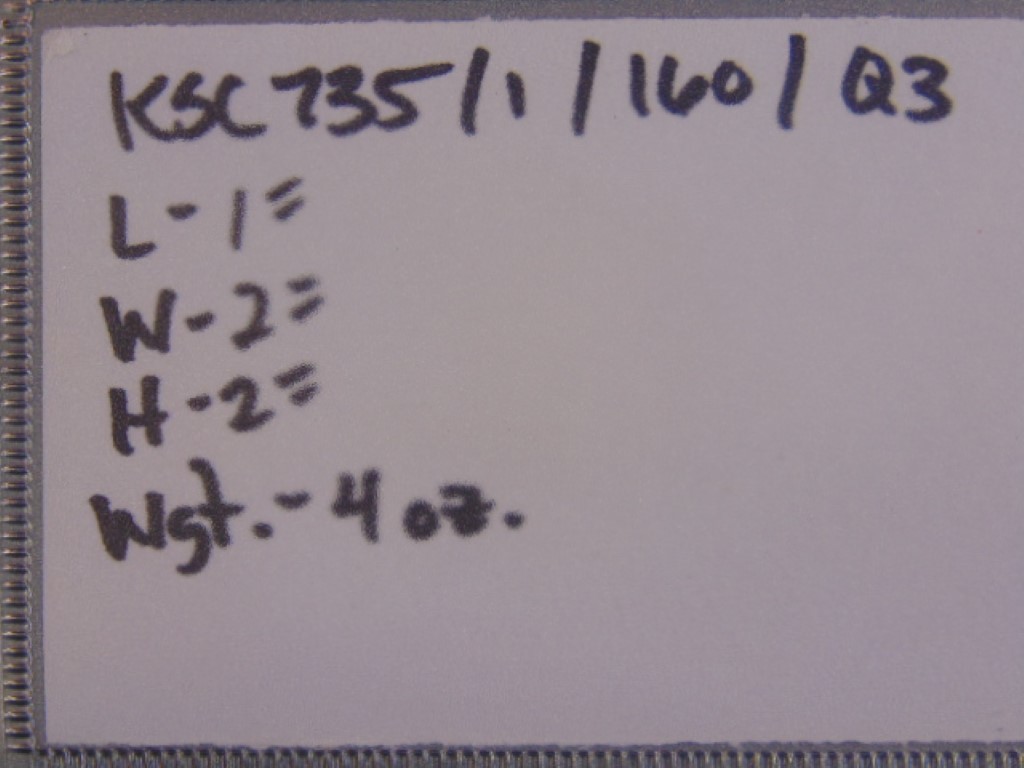 KSC 735/1/160/Q3
L - 1"
W - 2"
H - 2"
Wgt. - 4 oz.